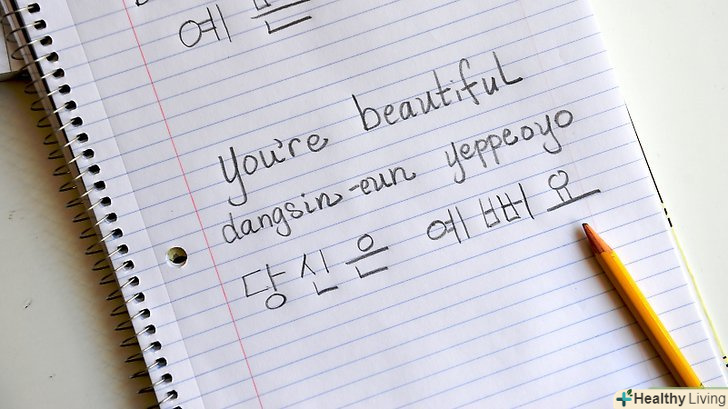 예쁜
you're beautiful
dangsin-eun yeppeoyo
당신은 예뻐요
Healthy Living